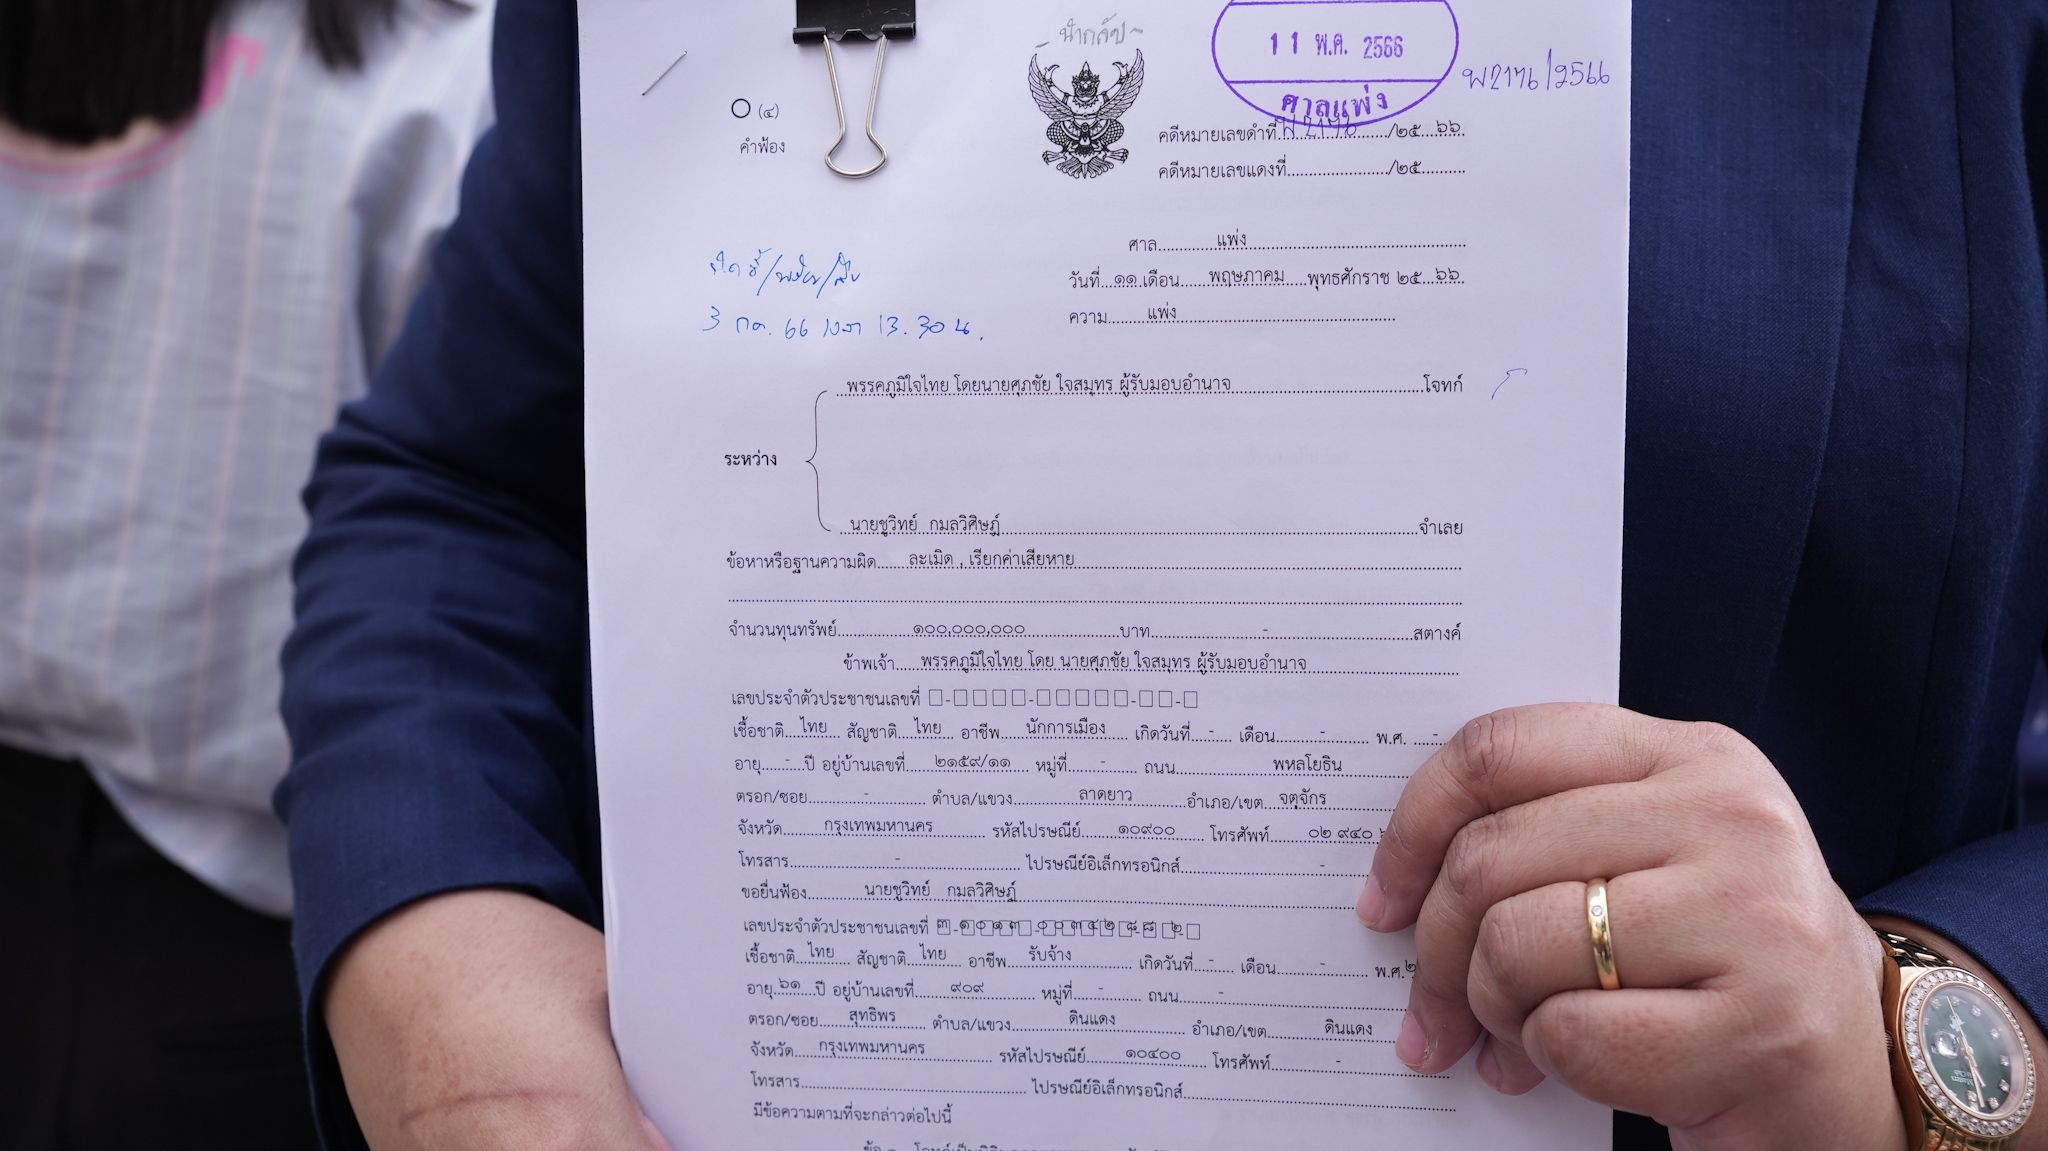 นำกลับ
11 พ.ค. 2566
ศาลแพ่ง
พ2176/2566
(๔)
คำฟ้อง
คดีหมายเลขดำที่ พ 2176 /๒๕ ๖๖
คดีหมายเลขแดงที่ /๒๕
ศาล แพ่ง
วันที่ ๑๑ เดือน พฤษภาคม พุทธศักราช ๒๕ ๖๖
ความ แพ่ง
3 กค. 66 เวลา 13.30 น.
พรรคภูมิใจไทย โดยนายศุภชัย ใจสมุทร ผู้รับมอบอำนาจ โจทก์
ระหว่าง
นายชูวิทย์ กมลวิศิษฎ์ จำเลย
ข้อหาหรือฐานความผิด ละเมิด , เรียกค่าเสียหาย
จำนวนทุนทรัพย์ ๑๐๐,๐๐๐,๐๐๐ บาท - สตางค์
ข้าพเจ้า พรรคภูมิใจไทย โดย นายศุภชัย ใจสมุทร ผู้รับมอบอำนาจ
เลขประจำตัวประชาชนเลขที่
เชื้อชาติ ไทย สัญชาติ ไทย อาชีพ นักการเมือง เกิดวันที่ - เดือน - พ.ศ. -
อายุ - ปี อยู่บ้านเลขที่ ๒๑๕๙/๑๑ หมู่ที่ - ถนน พหลโยธิน
ตรอก/ซอย - ตำบล/แขวง ลาดยาว อำเภอ/เขต จตุจักร
จังหวัด กรุงเทพมหานคร รหัสไปรษณีย์ ๑๐๙๐๐ โทรศัพท์ ๐๒ ๙๔๐
โทรสาร - ไปรษณีย์อิเล็กทรอนิกส์ -
ขอยื่นฟ้อง นายชูวิทย์ กมลวิศิษฎ์
เลขประจำตัวประชาชนเลขที่
เชื้อชาติ ไทย สัญชาติ ไทย อาชีพ รับจ้าง เกิดวันที่ - เดือน - พ.ศ.
อายุ ๖๑ ปี อยู่บ้านเลขที่ ๙๐๙ หมู่ที่ - ถนน -
ตรอก/ซอย สุทธิพร ตำบล/แขวง ดินแดง อำเภอ/เขต ดินแดง
จังหวัด กรุงเทพมหานคร รหัสไปรษณีย์ ๑๐๔๐๐ โทรศัพท์ -
โทรสาร ไปรษณีย์อิเล็กทรอนิกส์
มีข้อความตามที่จะกล่าวต่อไปนี้